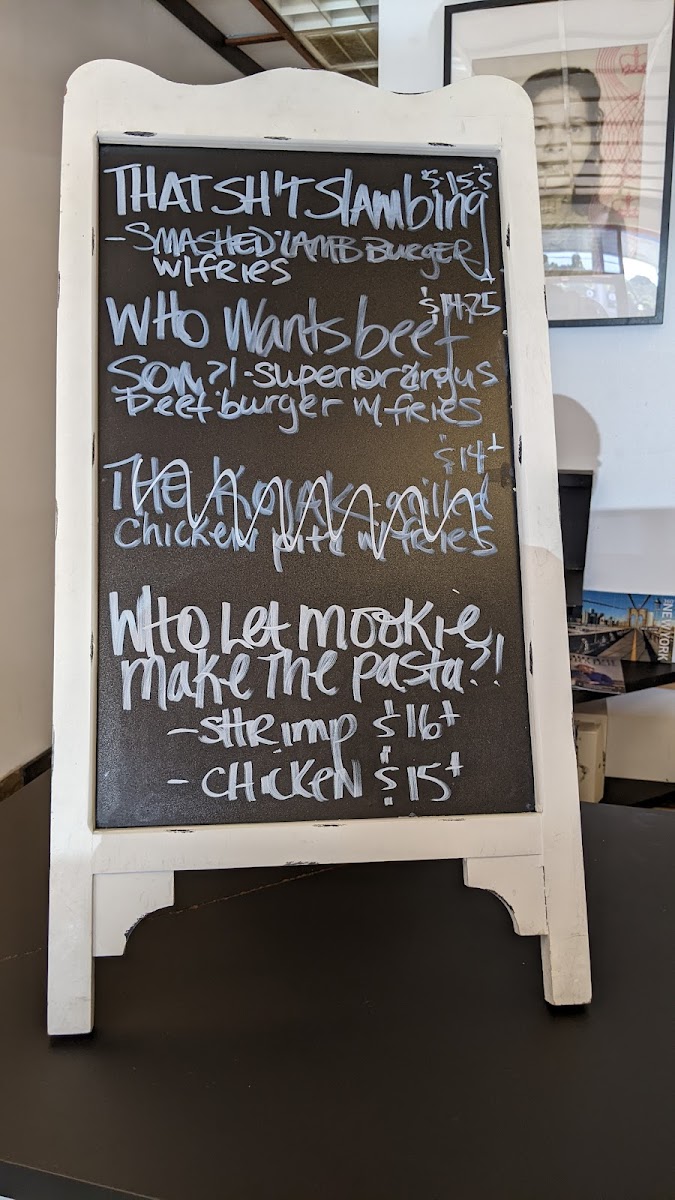 THAT SH'T SlAMbing $15.5+
- SMASHED LAMB BURGER
w/freies
WHO Wants beef $14.25+
Son?! - superior angus
beef burger w/freies
$14+
THE KOJAK - grilled
Chicken pita w/freies
WHO Let mookie
make The pasta?!
- SHRimp $16+
- CHicKEN $15+
NEW YORK